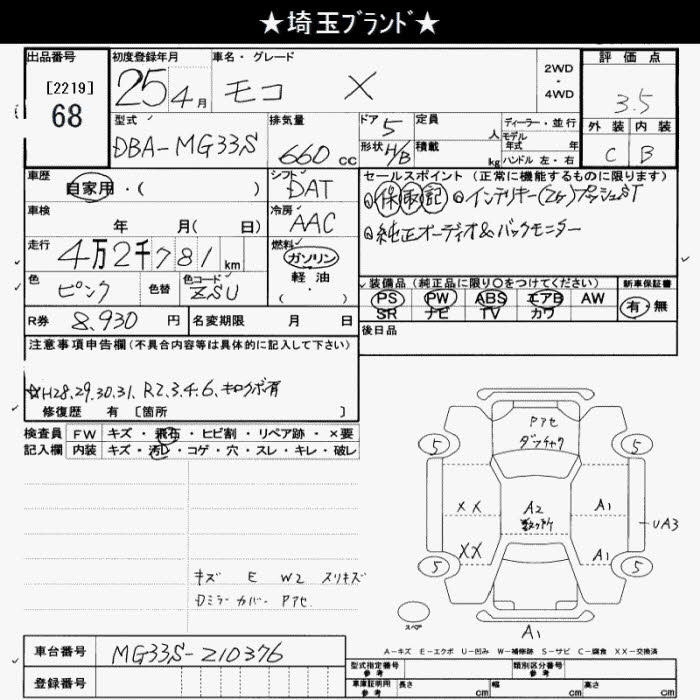 ★埼玉ブランド★
出品番号 初度登録年月 車名・グレード 評価点
[2219]
68
25年4月 モコ X
2WD
・
4WD
3.5
型式 排気量 ドア 定員 ディーラー・並行 外装 内装
DBA-MG33S 660cc 5 人 モデル年式 年
形状 H/B 積載 kg ハンドル 左・右 C B
車歴 シフト セールスポイント(正常に機能するものに限ります)
自家用・( ) DAT
◎保取記 ◎インテリキー(2ケ)プッシュST
車検 冷房
年 月(日) AAC
◎純正オーディオ&バックモニター
走行 4万2千781km
燃料 ガソリン
軽油
( ・ )
色 ピンク 色替 色コード ZSU
装備品(純正品に限り○をつけてください) 新車保証書
PS PW ABS エアB AW 有・無
SR ナビ TV カワ
R券 8,930円 名変期限 月 日
後日品
注意事項申告欄(不具合内容等は具体的に記入して下さい)
☆H28.29.30.31、R2.3.4.6、キロクボ有
修復歴 有 [箇所 ]
検査員 FW キズ・飛石・ヒビ割・リペア跡・×要
記入欄 内装 キズ・汚レ・コゲ・穴・スレ・キレ・破レ
Pアセ
5 5
XX A2 A1
XX A1
UA3
5 5
キズ E W2 スリキズ
Dミラーカバー Pアセ
スペア
A1
A-キズ E-エクボ U-凹み W-補修跡 S-サビ C-腐食 XX-交換済
車台番号 MG33S-210376
登録番号
型式指定番号 参考 類別区分番号 参考
車庫証明用 参考 長さ cm 幅 cm 高さ cm